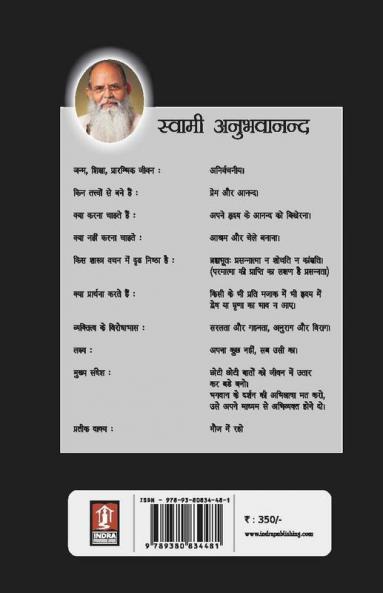 स्वामी अनुभवानन्द
जन्म, शिक्षा, प्रारम्भिक जीवन : अनिर्वचनीय।
किन तत्वों से बने हैं : प्रेम और आनन्द।
क्या करना चाहते हैं : अपने हृदय के आनन्द को बिखेरना।
क्या नहीं करना चाहते : आश्रम और चेले बनाना।
किस शास्त्र वचन में दृढ निष्ठा है : ब्रह्मभूतः प्रसन्नात्मा न शोचति न कांक्षति।
(परमात्मा की प्राप्ति का लक्षण है प्रसन्नता)
क्या प्रार्थना करते हैं : किसी के भी प्रति मजाक में भी हृदय में
द्वेष या घृणा का भाव न आए।
व्यक्तित्व के विरोधाभास : सरलता और गहनता, अनुराग और विराग।
लक्ष्य : अपना कुछ नहीं, सब उसी का।
मुख्य संदेश : छोटी छोटी बातों को जीवन में उतार
कर बडे बनो।
भगवान के दर्शन की अभिलाषा मत करो,
उसे अपने माध्यम से अभिव्यक्त होने दो।
प्रतीक वाक्य : मौज में रहो
ISBN - 978-93-80834-48-1
9 789380 834481
INDRA
₹ : 350/-
www.indrapublishing.com